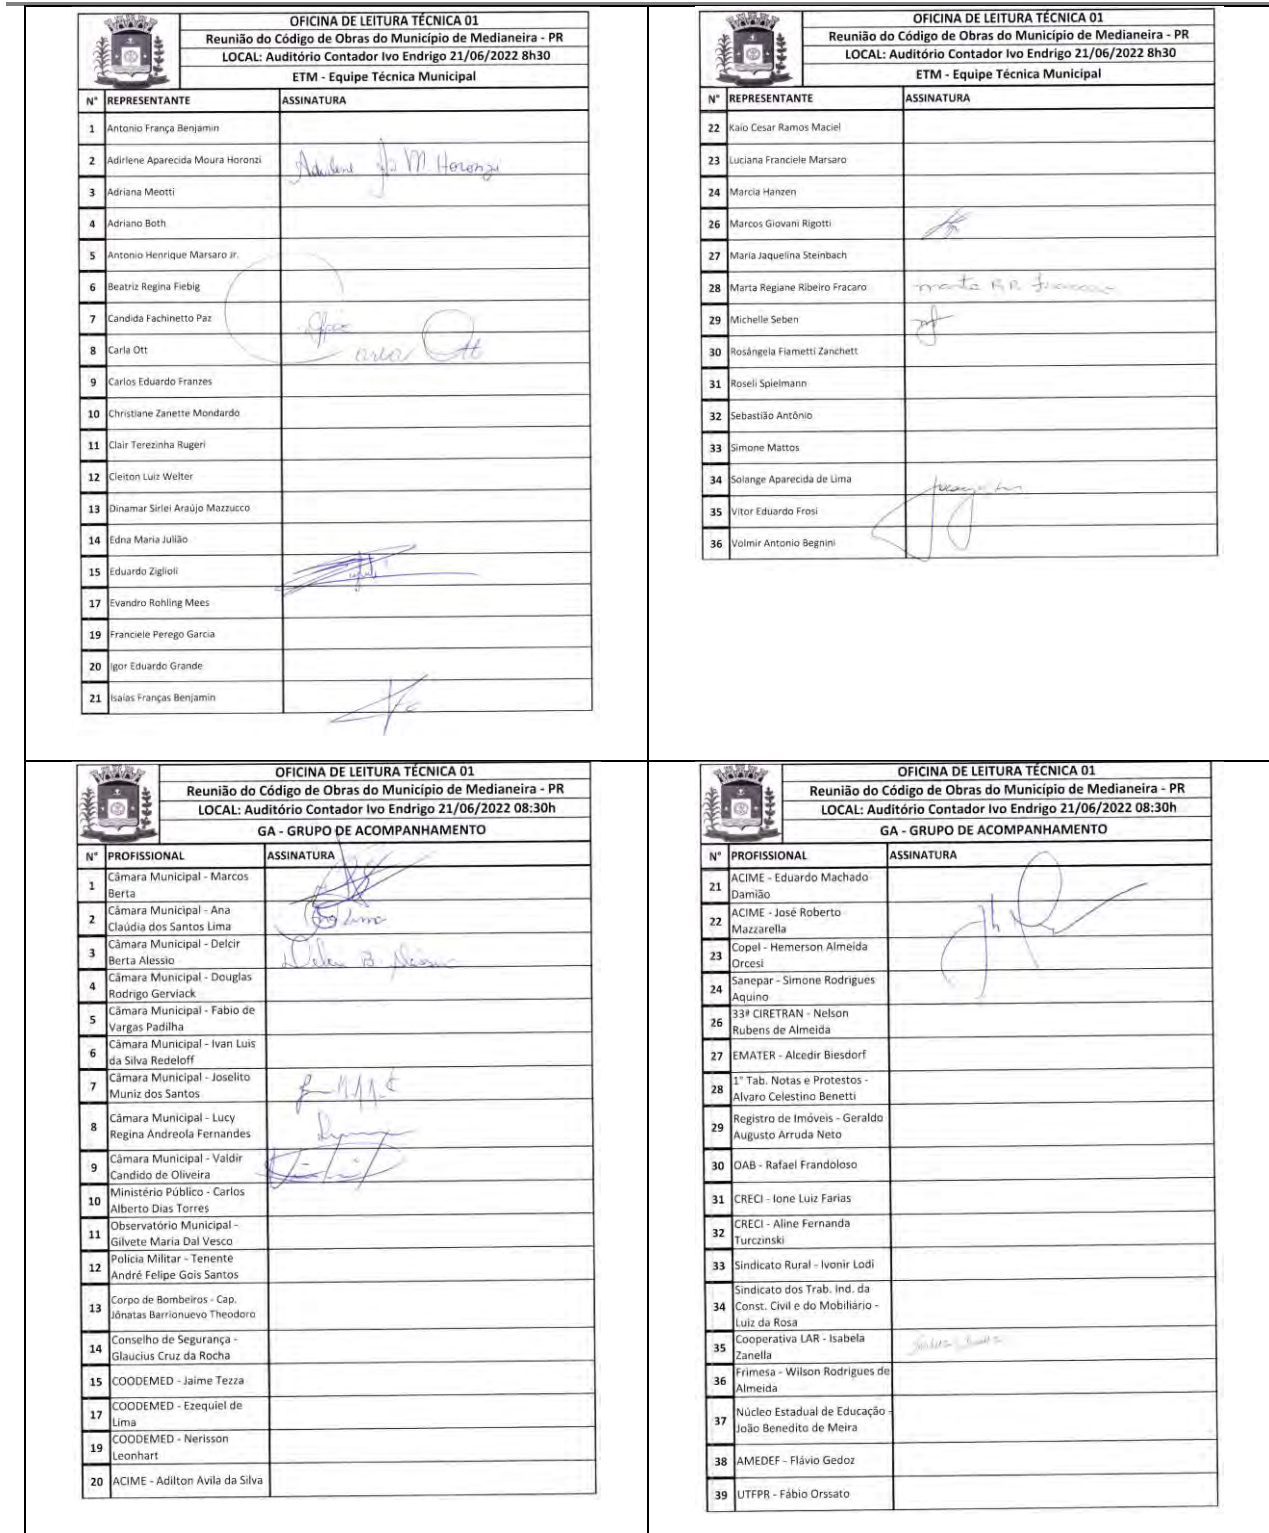 OFICINA DE LEITURA TÉCNICA 01
Reunião do Código de Obras do Município de Medianeira - PR
LOCAL: Auditório Contador Ivo Endrigo 21/06/2022 8h30
ETM - Equipe Técnica Municipal
N° REPRESENTANTE ASSINATURA
1 Antonio França Benjamin
2 Adirlene Aparecida Moura Horonzi Adirlene Ap M. Horonzi
3 Adriana Meotti
4 Adriano Both
5 Antonio Henrique Marsaro Jr.
6 Beatriz Regina Fiebig
7 Candida Fachinetto Paz
8 Carla Ott Carla Ott
9 Carlos Eduardo Franzes
10 Christiane Zanette Mondardo
11 Clair Terezinha Rugeri
12 Cleiton Luiz Welter
13 Dinamar Sirlei Araújo Mazzucco
14 Edna Maria Julião
15 Eduardo Ziglioli
17 Evandro Rohling Mees
19 Franciele Perego Garcia
20 Igor Eduardo Grande
21 Isaías Franças Benjamin
OFICINA DE LEITURA TÉCNICA 01
Reunião do Código de Obras do Município de Medianeira - PR
LOCAL: Auditório Contador Ivo Endrigo 21/06/2022 8h30
ETM - Equipe Técnica Municipal
N° REPRESENTANTE ASSINATURA
22 Kaio Cesar Ramos Maciel
23 Luciana Franciele Marsaro
24 Marcia Hanzen
26 Marcos Giovani Rigotti
27 Maria Jaquelina Steinbach
28 Marta Regiane Ribeiro Fracaro Marta R.R. Fracaro
29 Michelle Seben
30 Rosângela Fiametti Zanchett
31 Roseli Spielmann
32 Sebastião Antônio
33 Simone Mattos
34 Solange Aparecida de Lima
35 Vitor Eduardo Frosi
36 Volmir Antonio Begnini
OFICINA DE LEITURA TÉCNICA 01
Reunião do Código de Obras do Município de Medianeira - PR
LOCAL: Auditório Contador Ivo Endrigo 21/06/2022 08:30h
GA - GRUPO DE ACOMPANHAMENTO
N° PROFISSIONAL ASSINATURA
1 Câmara Municipal - Marcos
Berta
2 Câmara Municipal - Ana
Claúdia dos Santos Lima Ana Lima
3 Câmara Municipal - Delcir
Berta Alessio Delcir B. Alessio
4 Câmara Municipal - Douglas
Rodrigo Gerviack
5 Câmara Municipal - Fabio de
Vargas Padilha
6 Câmara Municipal - Ivan Luis
da Silva Redeloff
7 Câmara Municipal - Joselito
Muniz dos Santos
8 Câmara Municipal - Lucy
Regina Andreola Fernandes
9 Câmara Municipal - Valdir
Candido de Oliveira
10 Ministério Público - Carlos
Alberto Dias Torres
11 Observatório Municipal -
Gilvete Maria Dal Vesco
12 Polícia Militar - Tenente
André Felipe Gois Santos
13 Corpo de Bombeiros - Cap.
Jônatas Barrionuevo Theodoro
14 Conselho de Segurança -
Glaucius Cruz da Rocha
15 COODEMED - Jaime Tezza
17 COODEMED - Ezequiel de
Lima
19 COODEMED - Nerisson
Leonhart
20 ACIME - Adilton Avila da Silva
OFICINA DE LEITURA TÉCNICA 01
Reunião do Código de Obras do Município de Medianeira - PR
LOCAL: Auditório Contador Ivo Endrigo 21/06/2022 08:30h
GA - GRUPO DE ACOMPANHAMENTO
N° PROFISSIONAL ASSINATURA
21 ACIME - Eduardo Machado
Damião
22 ACIME - José Roberto
Mazzarella
23 Copel - Hemerson Almeida
Orcesi
24 Sanepar - Simone Rodrigues
Aquino
26 33ª CIRETRAN - Nelson
Rubens de Almeida
27 EMATER - Alcedir Biesdorf
28 1° Tab. Notas e Protestos -
Alvaro Celestino Benetti
29 Registro de Imóveis - Geraldo
Augusto Arruda Neto
30 OAB - Rafael Frandoloso
31 CRECI - Ione Luiz Farias
32 CRECI - Aline Fernanda
Turczinski
33 Sindicato Rural - Ivonir Lodi
34 Sindicato dos Trab. Ind. da
Const. Civil e do Mobiliário -
Luiz da Rosa
35 Cooperativa LAR - Isabela
Zanella
36 Frimesa - Wilson Rodrigues de
Almeida
37 Núcleo Estadual de Educação -
João Benedito de Meira
38 AMEDEF - Flávio Gedoz
39 UTFPR - Fábio Orssato